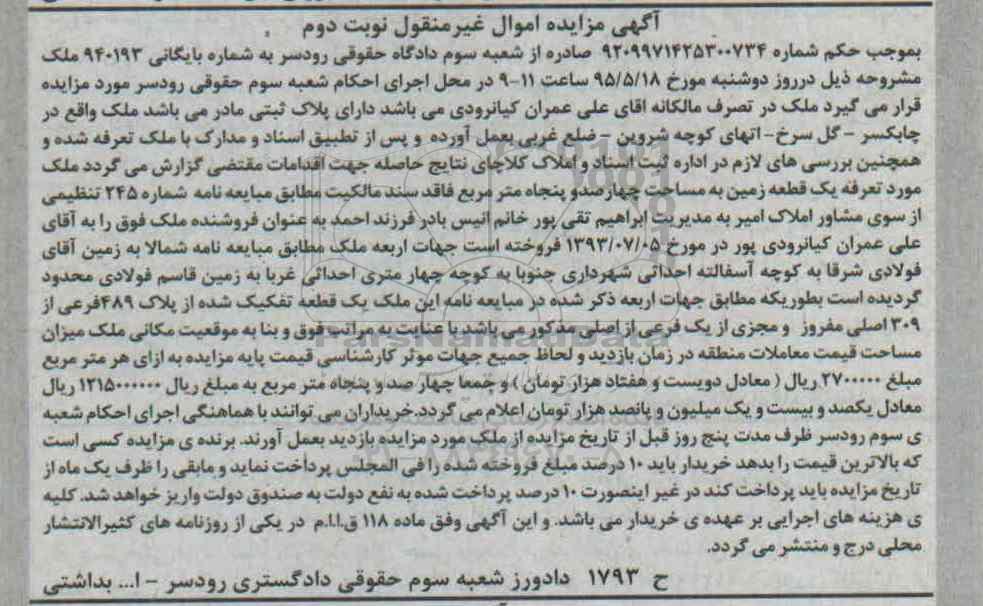 آگهی مزایده اموال غیرمنقول نوبت دوم
بموجب حکم شماره ۹۲۰۹۹۷۱۴۲۵۳۰۰۷۳۴ صادره از شعبه سوم دادگاه حقوقی رودسر به شماره بایگانی ۹۴۰۱۹۳ ملک
مشروحه ذیل درروز دوشنبه مورخ ۹۵/۵/۱۸ ساعت ۱۱-۹ در محل اجرای احکام شعبه سوم حقوقی رودسر مورد مزایده
قرار می گیرد ملک در تصرف مالکانه اقای علی عمران کیانرودی می باشد دارای پلاک ثبتی مادر می باشد ملک واقع در
چابکسر - گل سرخ- انتهای کوچه شروین - ضلع غربی بعمل آورده و پس از تطبیق اسناد و مدارک با ملک تعرفه شده و
همچنین بررسی های لازم در اداره ثبت اسناد و املاک کلاچای نتایج حاصله جهت اقدامات مقتضی گزارش می گردد ملک
مورد تعرفه یک قطعه زمین به مساحت چهارصدو پنجاه متر مربع فاقد سند مالکیت مطابق مبایعه نامه شماره ۲۴۵ تنظیمی
از سوی مشاور املاک امیر به مدیریت ابراهیم تقی پور خانم انیس بادر فرزند احمد به عنوان فروشنده ملک فوق را به آقای
علی عمران کیانرودی پور در مورخ ۱۳۹۳/۰۷/۰۵ فروخته است جهات اربعه ملک مطابق مبایعه نامه شمالا به زمین آقای
فولادی شرقا به کوچه آسفالته احداثی شهرداری جنوبا به کوچه چهار متری احداثی غربا به زمین قاسم فولادی محدود
گردیده است بطوریکه مطابق جهات اربعه ذکر شده در مبایعه نامه این ملک یک قطعه تفکیک شده از پلاک ۴۸۹فرعی از
۳۰۹ اصلی مفروز و مجزی از یک فرعی از اصلی مذکور می باشد با عنایت به مراتب فوق و بنا به موقعیت مکانی ملک میزان
مساحت قیمت معاملات منطقه در زمان بازدید و لحاظ جمیع جهات موثر کارشناسی قیمت پایه مزایده به ازای هر متر مربع
مبلغ ۲۷۰۰۰۰۰ ریال ( معادل دویست و هفتاد هزار تومان ) و جمعا چهار صد و پنجاه متر مربع به مبلغ ریال ۱۲۱۵۰۰۰۰۰۰ ریال
معادل یکصد و بیست و یک میلیون و پانصد هزار تومان اعلام می گردد.خریداران می توانند با هماهنگی اجرای احکام شعبه
ی سوم رودسر ظرف مدت پنج روز قبل از تاریخ مزایده از ملک مورد مزایده بازدید بعمل آورند. برنده ی مزایده کسی است
که بالاترین قیمت را بدهد خریدار باید ۱۰ درصد مبلغ فروخته شده را فی المجلس پرداخت نماید و مابقی را ظرف یک ماه از
تاریخ مزایده باید پرداخت کند در غیر اینصورت ۱۰ درصد پرداخت شده به نفع دولت به صندوق دولت واریز خواهد شد. کلیه
ی هزینه های اجرایی بر عهده ی خریدار می باشد. و این آگهی وفق ماده ۱۱۸ ق.ا.ا.م در یکی از روزنامه های کثیرالانتشار
محلی درج و منتشر می گردد.
ح ۱۷۹۳ دادورز شعبه سوم حقوقی دادگستری رودسر - ا... بداشتی
ParsNamadData